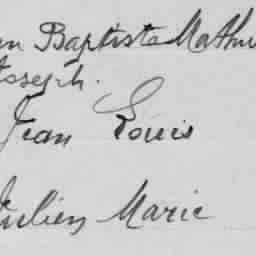 Baptiste Mathu
Joseph.
Jean Louis
Julien Marie